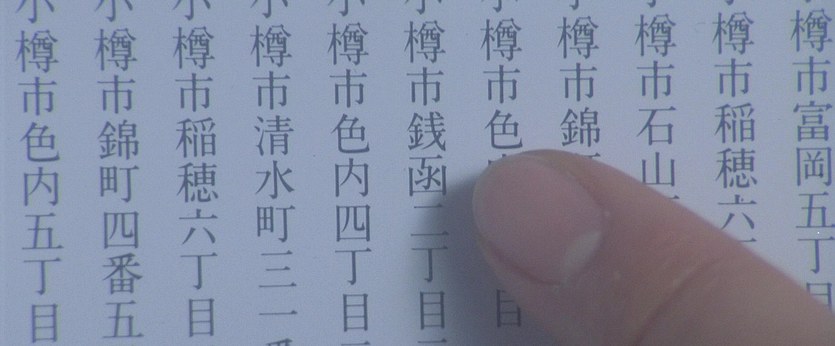 樽市富岡五丁目
樽市稲穂六
樽市石山
樽市錦
樽市色
小樽市銭函二丁目
小樽市色内四丁目
小樽市清水町三一
小樽市稲穂六丁目
小樽市錦町四番五
小樽市色内五丁目